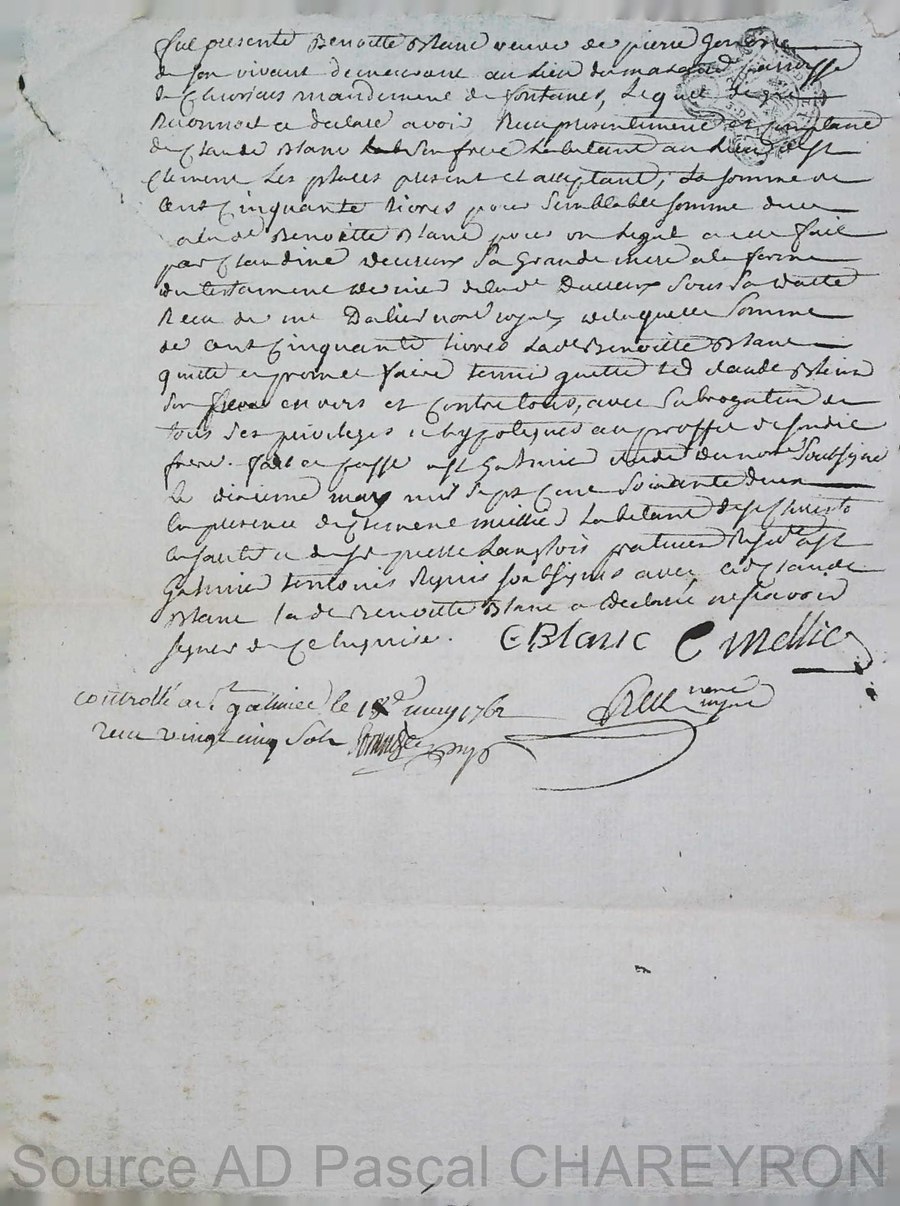 fut presente Benoitte Blanc veuve de pierre
de son vivant demeurant au lieu du parroisse
de mandement de fontanes, Lequel de gré
Reconnoit et declare avoir Receu presentement et comptant
de Claude Blanc son frere habitant au lieu de St
Clement Les places present et acceptant, La somme de
Cent Cinquante Livres pour semblable somme deue
a lad Benoitte Blanc pour un Legat a elle fait
par Claudine Ducreux Sa Grande mere a la forme
du testament dernier de lade Ducreux Sous Sa datte
Receu de me notre Royal de laquelle somme
de Cent Cinquante Livres Lade Benoitte Blanc
quitte et promet faire tenir quitte led Claude Blanc
Son frere envers et Contre tous, avec Subrogation de
tous Ses privileges et hypoteques au proffit de sondit
frere. fait et passé a St Galmier etude du notre Soubsigné
Le dixieme may mil Sept Cent Soixante deux
En presence de Clement habitant de
et de Sr pierre Langlois praticien Resid a St
Galmier temoins Requis soubsignés avec led Claude
Blanc lade Benoitte Blanc a declaré ne sçavoir
signer de Ce Enquise. C Blanc C Mellier
controllé a St galmier le 18e may 1762
Receu vingt cinq Sols
Source AD Pascal CHAREYRON